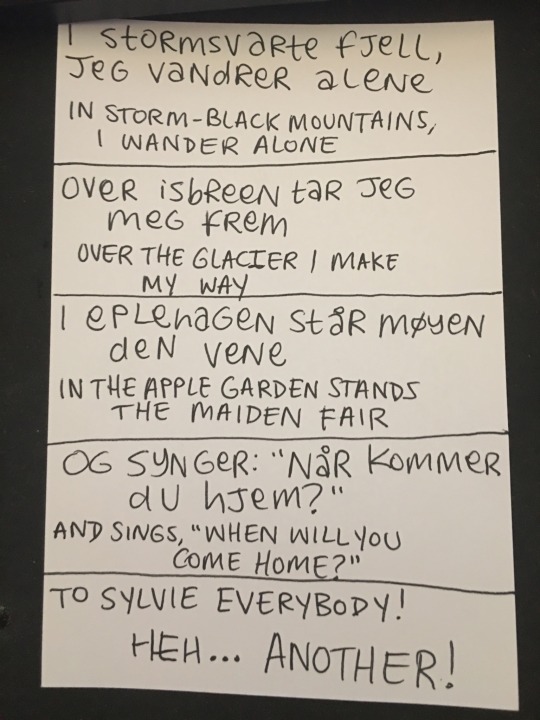 I STORMSVARTE FJELL,
JEG VANDRER ALENE
IN STORM-BLACK MOUNTAINS,
I WANDER ALONE
OVER ISBREEN TAR JEG
MEG FREM
OVER THE GLACIER I MAKE
MY WAY
I EPLEHAGEN STÅR MØYEN
DEN VENE
IN THE APPLE GARDEN STANDS
THE MAIDEN FAIR
OG SYNGER: "NÅR KOMMER
DU HJEM?"
AND SINGS, "WHEN WILL YOU
COME HOME?"
TO SYLVIE EVERYBODY!
HEH... ANOTHER!